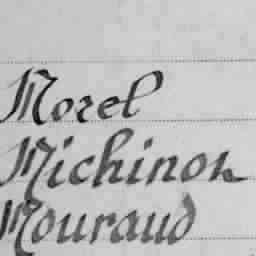 Morel
Michinon
Mouraud